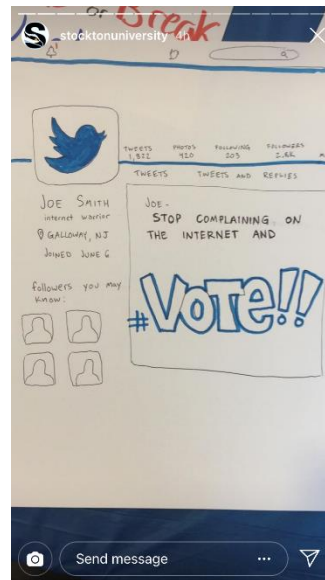 or Break
stocktonuniversity 4h
TWEETS PHOTOS FOLLOWING FOLLOWERS
1,322 420 203
TWEETS TWEETS AND REPLIES
JOE SMITH
internet warrior
GALLOWAY, NJ
JOINED JUNE 6
followers you may
know:
JOE -
STOP COMPLAINING ON
THE INTERNET AND
#VOTE!!
Send message